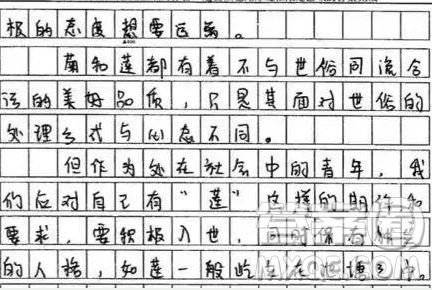 极的态度想要远离。
菊和莲都有着不与世俗同流合
污的美好品质,只是其面对世俗的
处理方式与心态不同。
但作为处在社会中的青年,我
们应对自己有“莲”这样的期许和
要求,要积极入世,同时保有独立
的人格,如莲一般屹立在池塘之中。